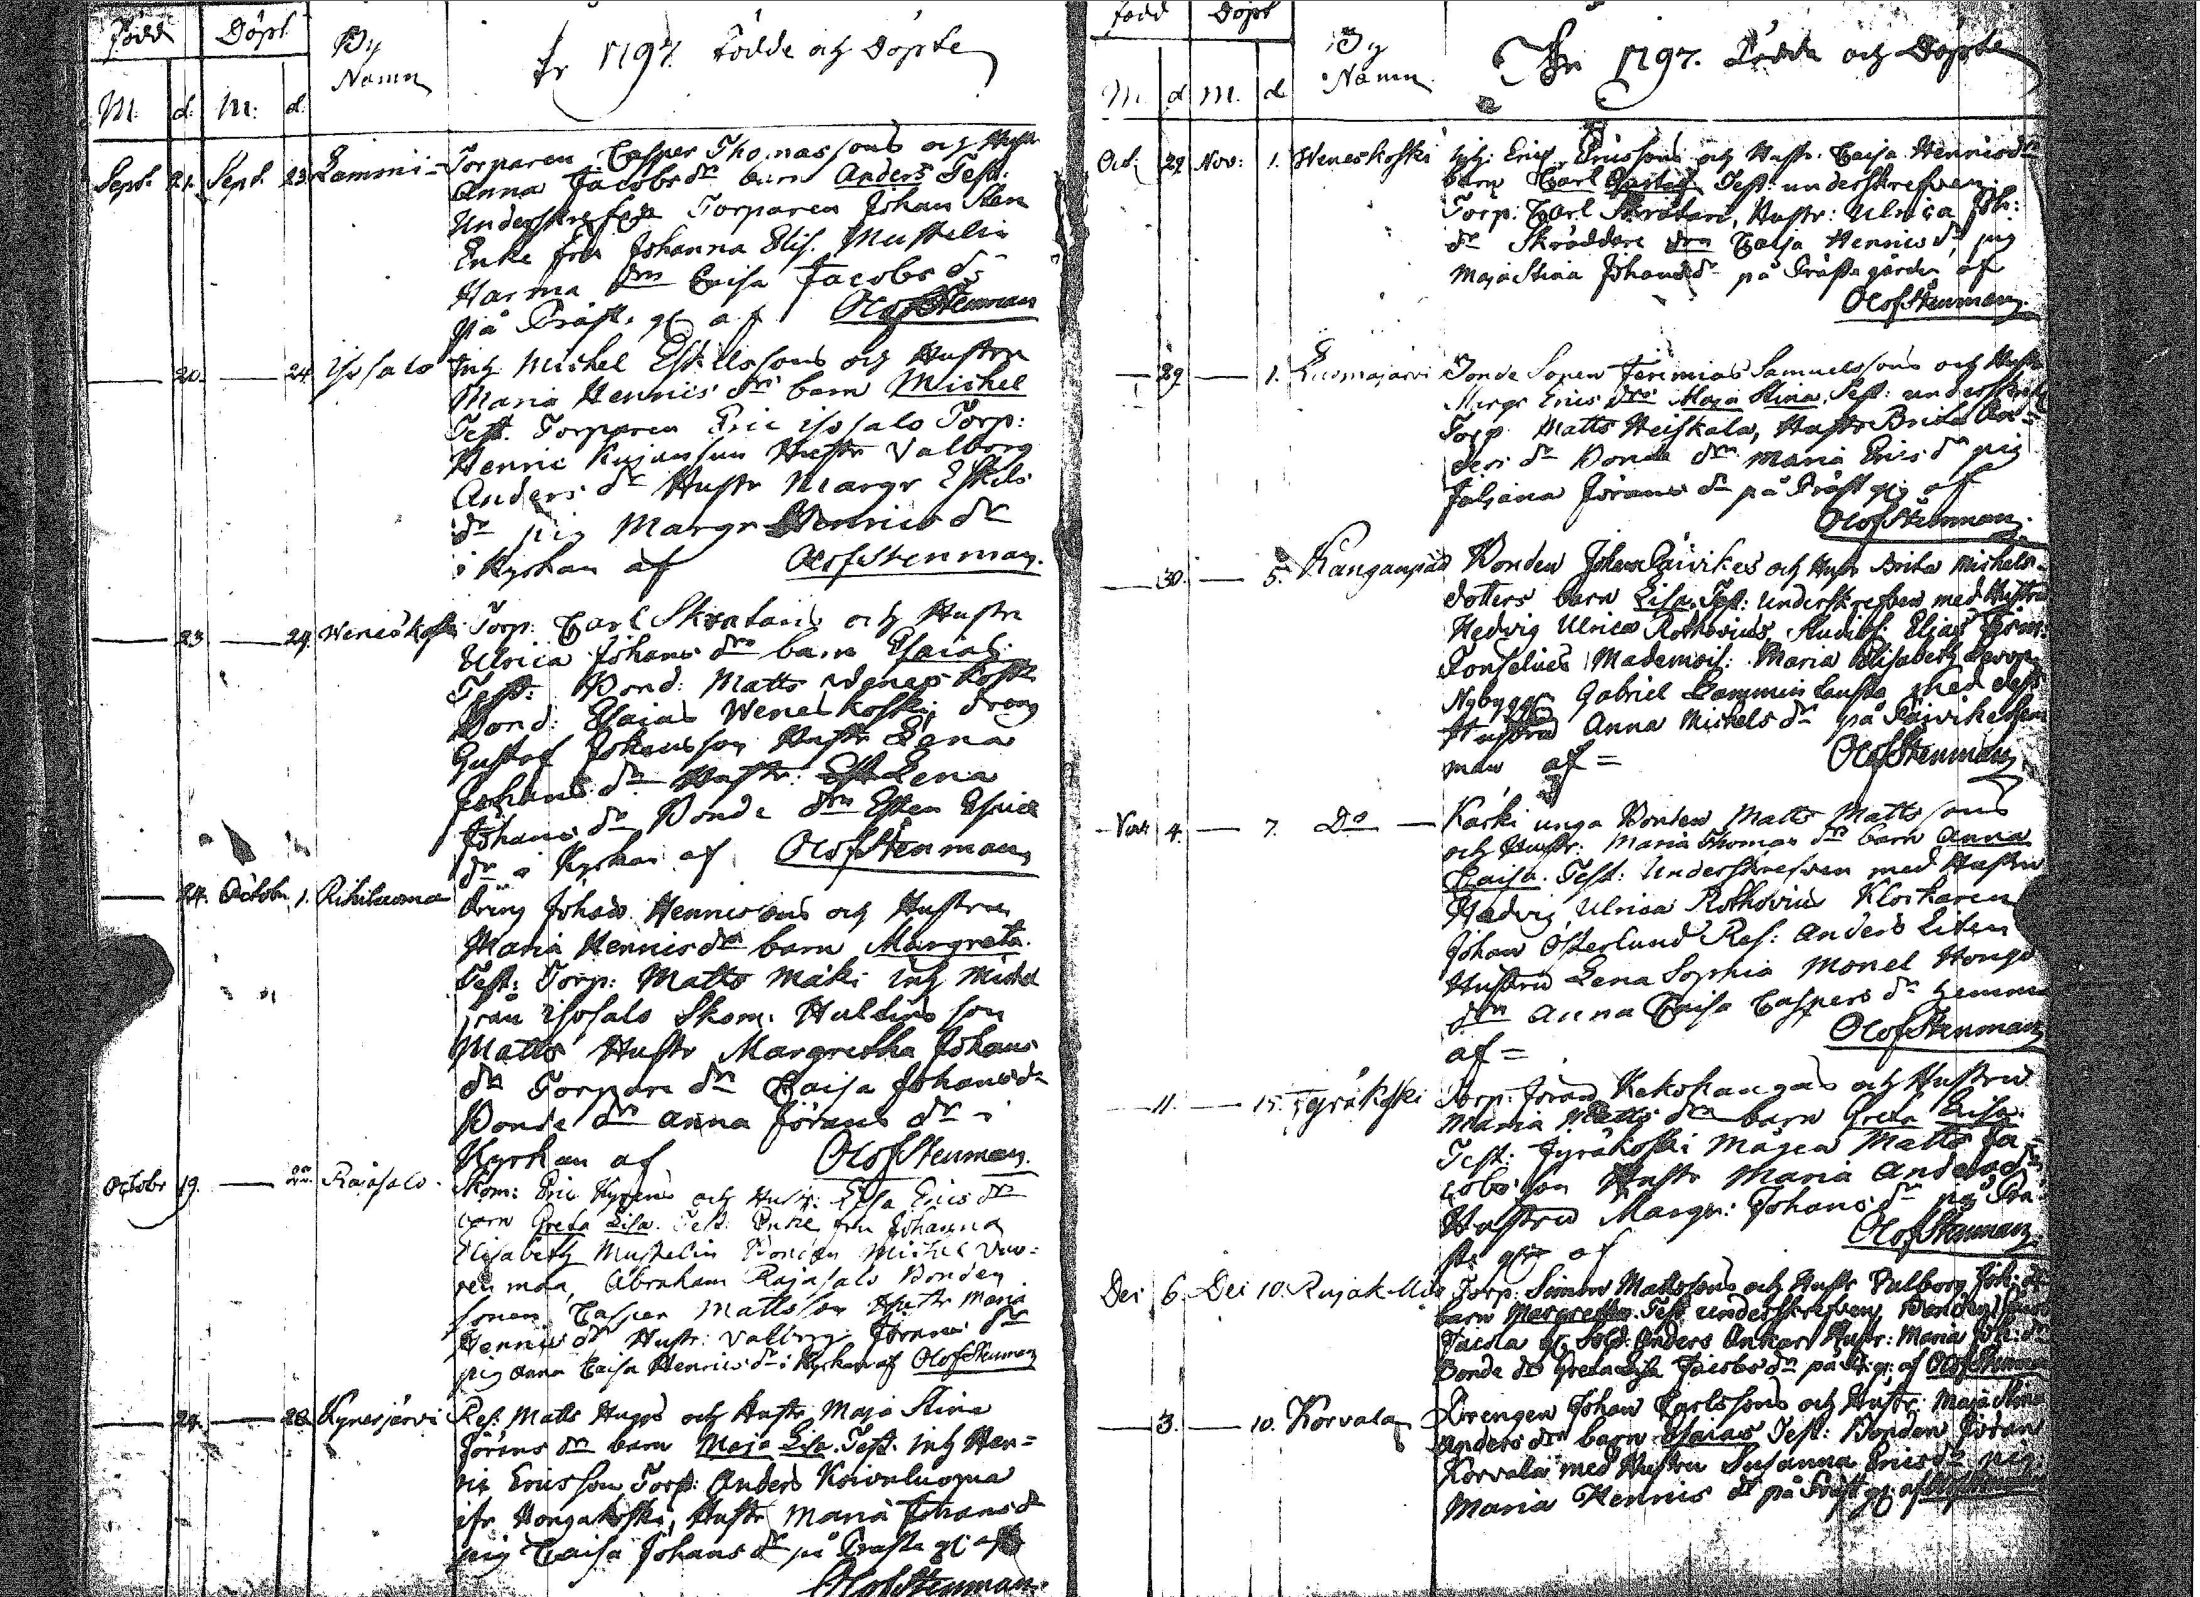 Född Döpt By Namn
År 1797. Födde och Döpte
M. d. M: d.
Sept. 21. Sept. 23. Lammi= Torparen Casper Thomassons och Hustr
Anna Jacobs dr barn Anders Test:
Underskrefven Torparen Johan
Enke fru Johanna Elis. Mustelin
Harma drn Caisa Jacobs dr
på Präst. gl af Olof Stenman
20. 24. Isosalo Inh Michel Eskilssons och Hustru
Maria Henrics drs barn Michel
Test. Torparen Eric isosalo Torp:
Henric Kujansuu Hustr Valborg
Anders dr Hustr Margr Eskils
dr pig Margr Henrics dr
i Kyrkan af Olof Stenman.
23. 24. Weneskoski Torp: Carl Skratars och Hustru
Ulrica Johans drs barn Esaias.
Test: Bond: Matts Weneskoski
Bond: Esaias Weneskoski dreng
Gustaf Johansson Hustr Lena
Johans dr Hustr: Lena
Johans dr Bonde drn
dr i Kyrkan af Olof Stenman
24. Octobr 1. Rihiluoma Dräng Johan Henricsons och Hustru
Maria Henrics drs barn Margreta.
Test: Torp: Matts Mäki inh Michel
från Isosalo Skom: Huldins son
Matts Hustr Margretha Johans
dr Torpare drn Caisa Johans dr
Bonde drn Anna Jörans dr i
Kyrkan af Olof Stenman.
Octobr 19. 22 Rajasalo. Skom: Eric och Hustr: Lisa Erics drs
barn Greta Lisa. Test: Enke fru Johanna
Elisabeth Mustelin Bonden Michel Vuo=
renmaa, Abraham Rajasalo Bonden
sonen Casper Mattsson Hustr Maria
Henrics dr Hustr: Valborg Jörans dr
pig Anna Caisa Henrics dr i Kyrkan af Olof Stenman
24. 28. Kynesjärvi Res: Matts Huggs och Hustr Maja Stina
Jörans drs barn Maja Lisa. Test. inh Hen=
ric Ericsson Torp: Anders Koivuluoma
ifr Hongakoski, Hustr Maria Johans dr
pig Caisa Johans dr på Prästa gl af
Olof Stenman.
född Döpt By Namn
År 1797. Födde och Döpte
M. d M. d
Oct: 29 Nov: 1. Weneskoski Inh: Eric Ericssons och Hustr: Caisa Henrics drs
barn Carl Gustaf Test: underskrefven.
Torp: Carl Skratari, Hustr: Ulrica Joh:
dr Skräddare drn Caisa Henrics dr pig
Maja Stina Johans dr på Prästagården af
Olof Stenman.
29 1. Luomajärvi Bonde Sonen Jeremias Samuelssons och Hustr
Margr Erics drs Maja Stina. Test: underskref
Torp Matts Heiskala, Hustr Brita An=
ders dr Bonde drn Maria Erics dr pig
Juliana Jörans dr på Präst gl: af
Olof Stenman.
30. 5. Kanganpää Bonden Johan Päivikes och Hustr Brita Michels=
dotters barn Lisa. Test: Underskrefven med Hustru
Hedvig Ulrica Rothovius, Studios. Elias
Fonselius Mademois: Maria Elisabeth
Nybyggr Gabriel Lammin med dess
Hustru Anna Michels dr på
man af = Olof Stenman
Nov: 4. 7. Do Karki unga Bonden Matts Mattssons
och Hustr: Maria Thomas drs barn Anna
Caisa. Test: Underskrefven med Hustru
Hedvig Ulrica Rothovius Klockaren
Johan Österlund Res: Anders Liten
Hustru Lena Sophia Monel Hongo
drn Anna Caisa Caspers dr hemma
af = Olof Stenman
11. 15. Jyräkoski Torp: Jöran Kekokangas och Hustru
Maria Matts drs barn Greta Lisa.
Test: Jyräkoski Mågen Matts Ja=
cobsson Hustr Maria Anders dr
Hustru Margr: Johans dr på Prä=
ste gl: af Olof Stenman
Dec 6. Dec 10. Torp: Simon Mattssons och Hustr Valborg Joh: drs
barn Margretha. Test underskrefven, Bonden
Sold: Anders Ankar Hustr: Maria Joh: dr
Bonde dr Greta Lisa Jacobs dr på Pr: g: af Olof Stenman
3. 10. Korvala Drengen Johan Carlssons och Hustr: Maja Stina
Anders drs barn Esaias Test: Bonden Jöran
Korvala med Hustru Susanna Erics dr pig
Maria Henrics dr på Präst g: af Olof Stenman